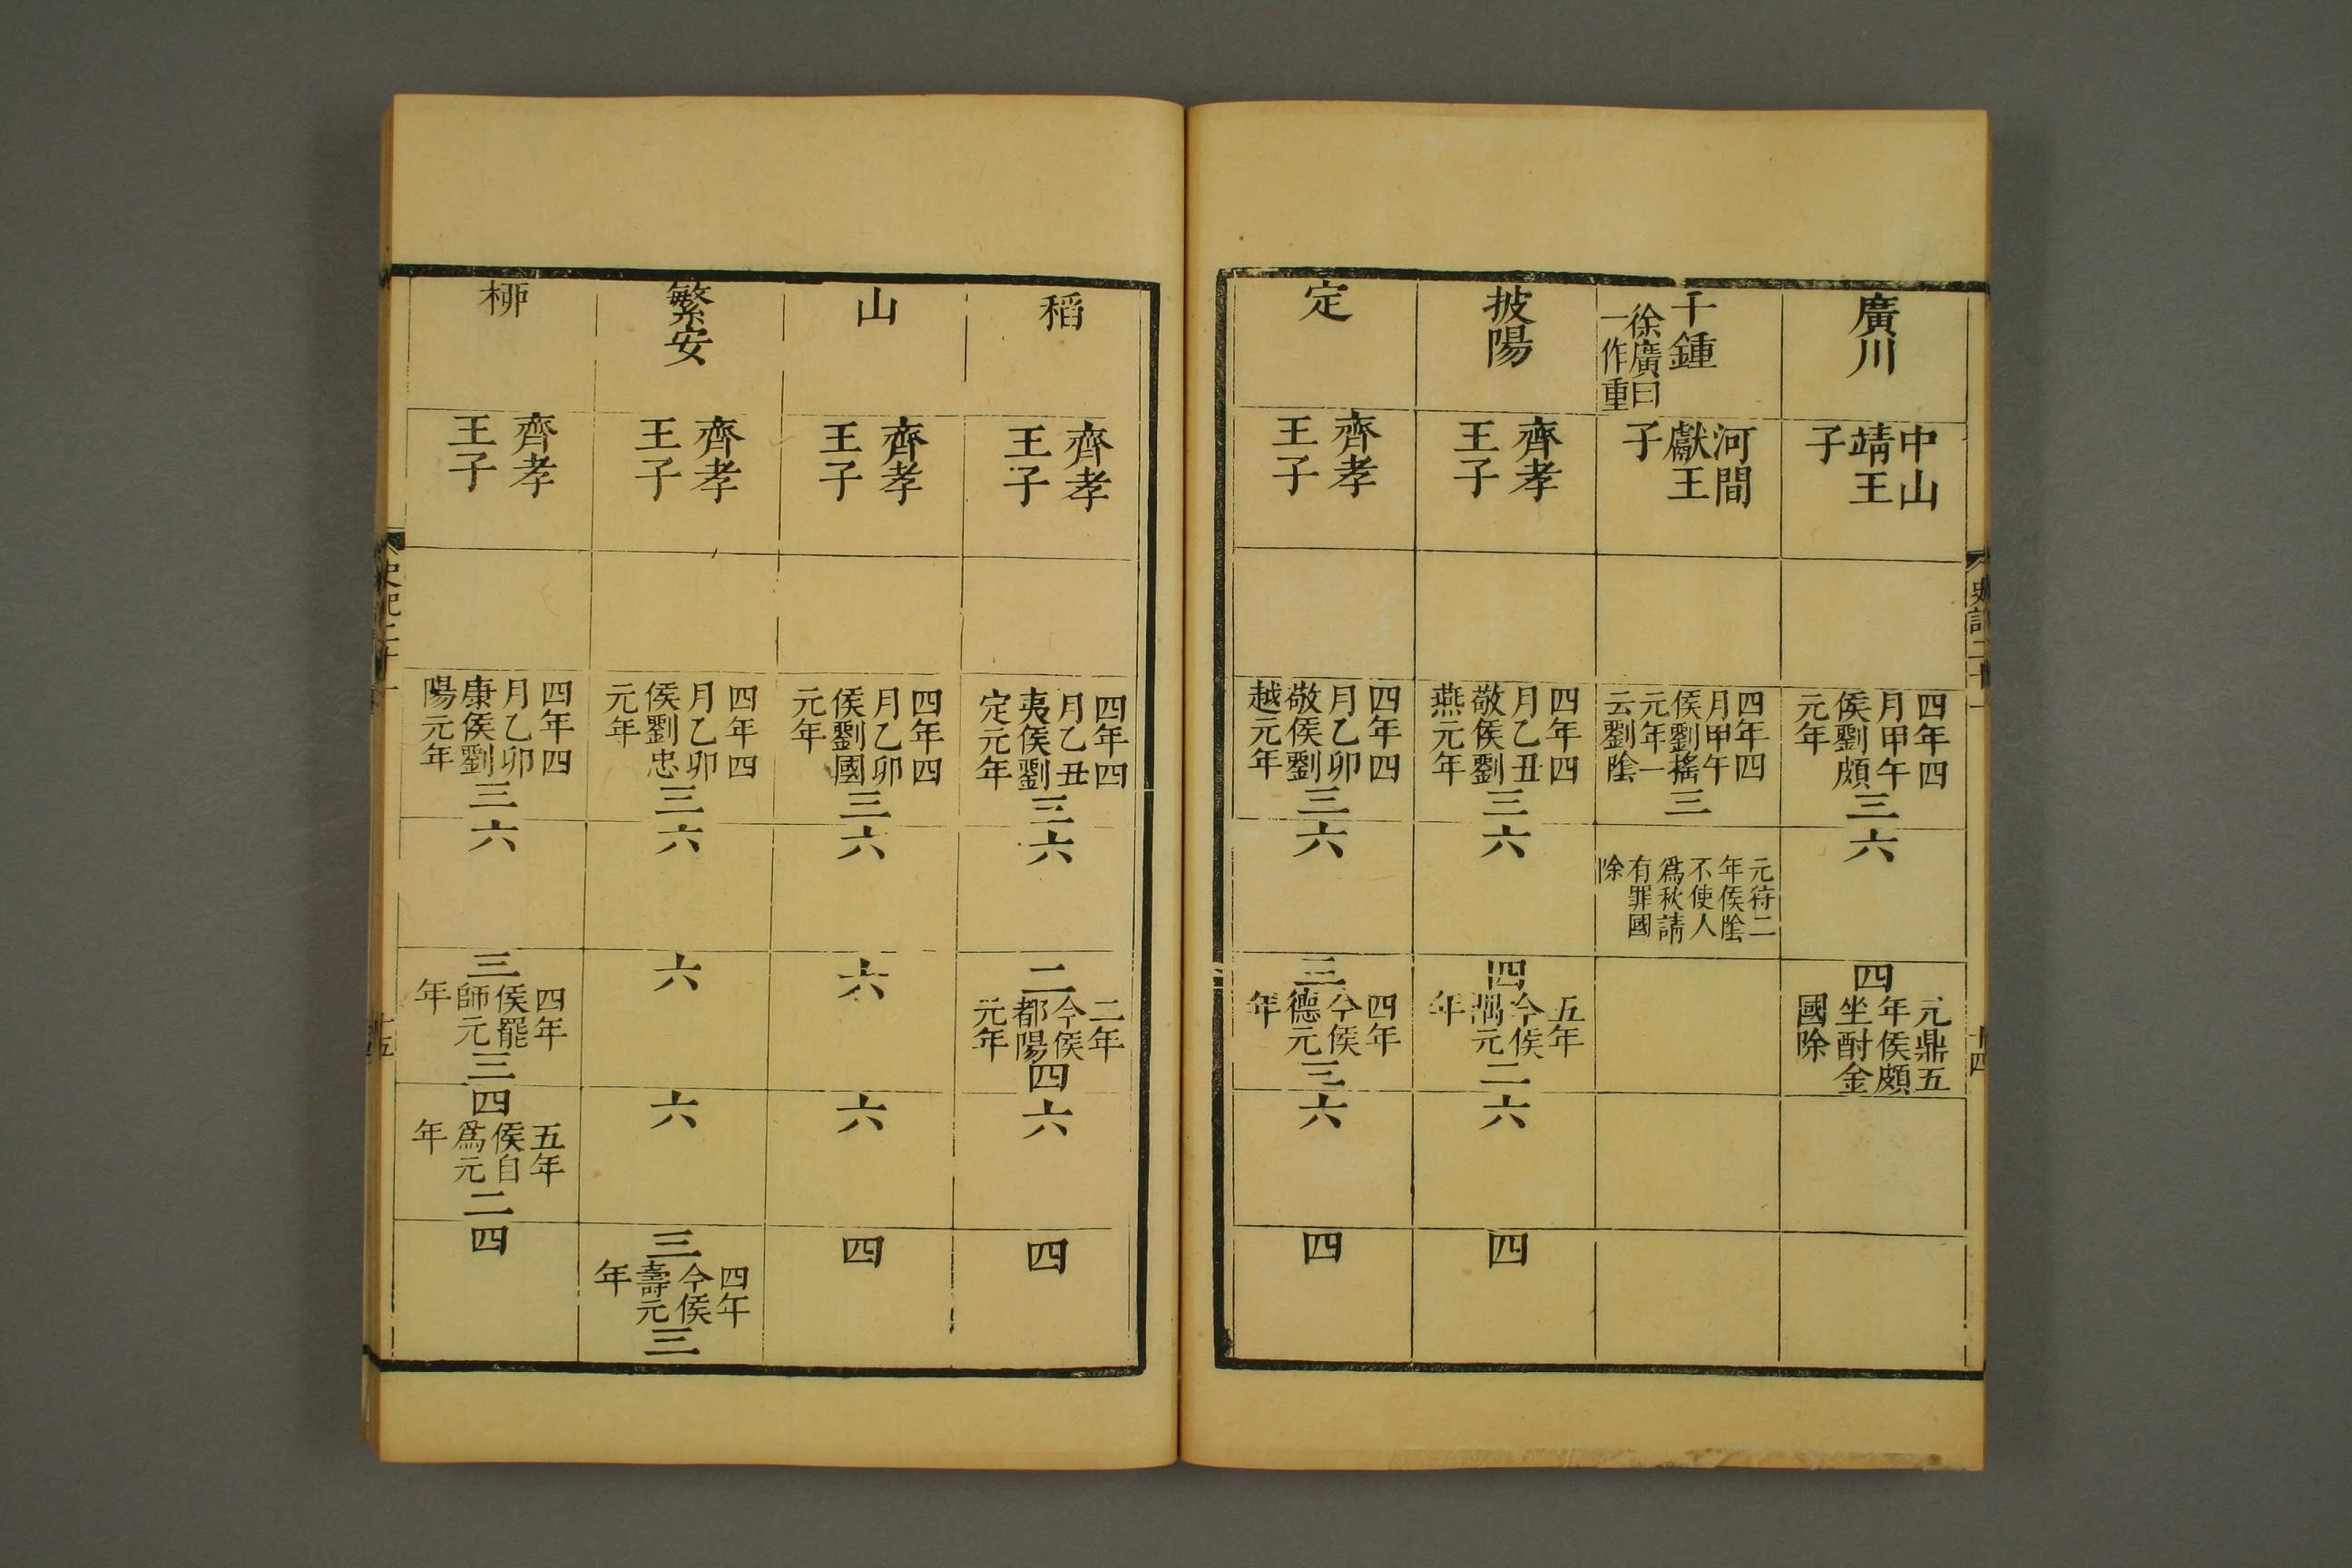 廣川
中山
靖王
子
四年四
月甲午
侯劉頗
元年
三
六
四
元鼎五
年侯頗
坐酎金
國除
千鍾
徐廣曰
一作重
河間
獻王
子
四年四
月甲午
侯劉搖
元年一
云劉陰
三
元狩二
年侯陰
不使人
爲秋請
有罪國
除
披陽
齊孝
王子
四年四
月乙丑
敬侯劉
燕元年
三
六
四
五年
今侯
隅元
年
二
六
四
定
齊孝
王子
四年四
月乙卯
敬侯劉
越元年
三
六
三
四年
今侯
德元
年
三
六
四
史記二十一
十四
稻
齊孝
王子
四年四
月乙丑
夷侯劉
定元年
三
六
二
二年
今侯
都陽
元年
四
六
四
山
齊孝
王子
四年四
月乙卯
侯劉國
元年
三
六
六
六
四
繁安
齊孝
王子
四年四
月乙卯
侯劉忠
元年
三
六
六
六
三
四年
今侯
壽元
年
三
柳
齊孝
王子
四年四
月乙卯
康侯劉
陽元年
三
六
三
四年
侯罷
師元
年
三
四
五年
侯自
爲元
年
二
四
史記二十一
十五